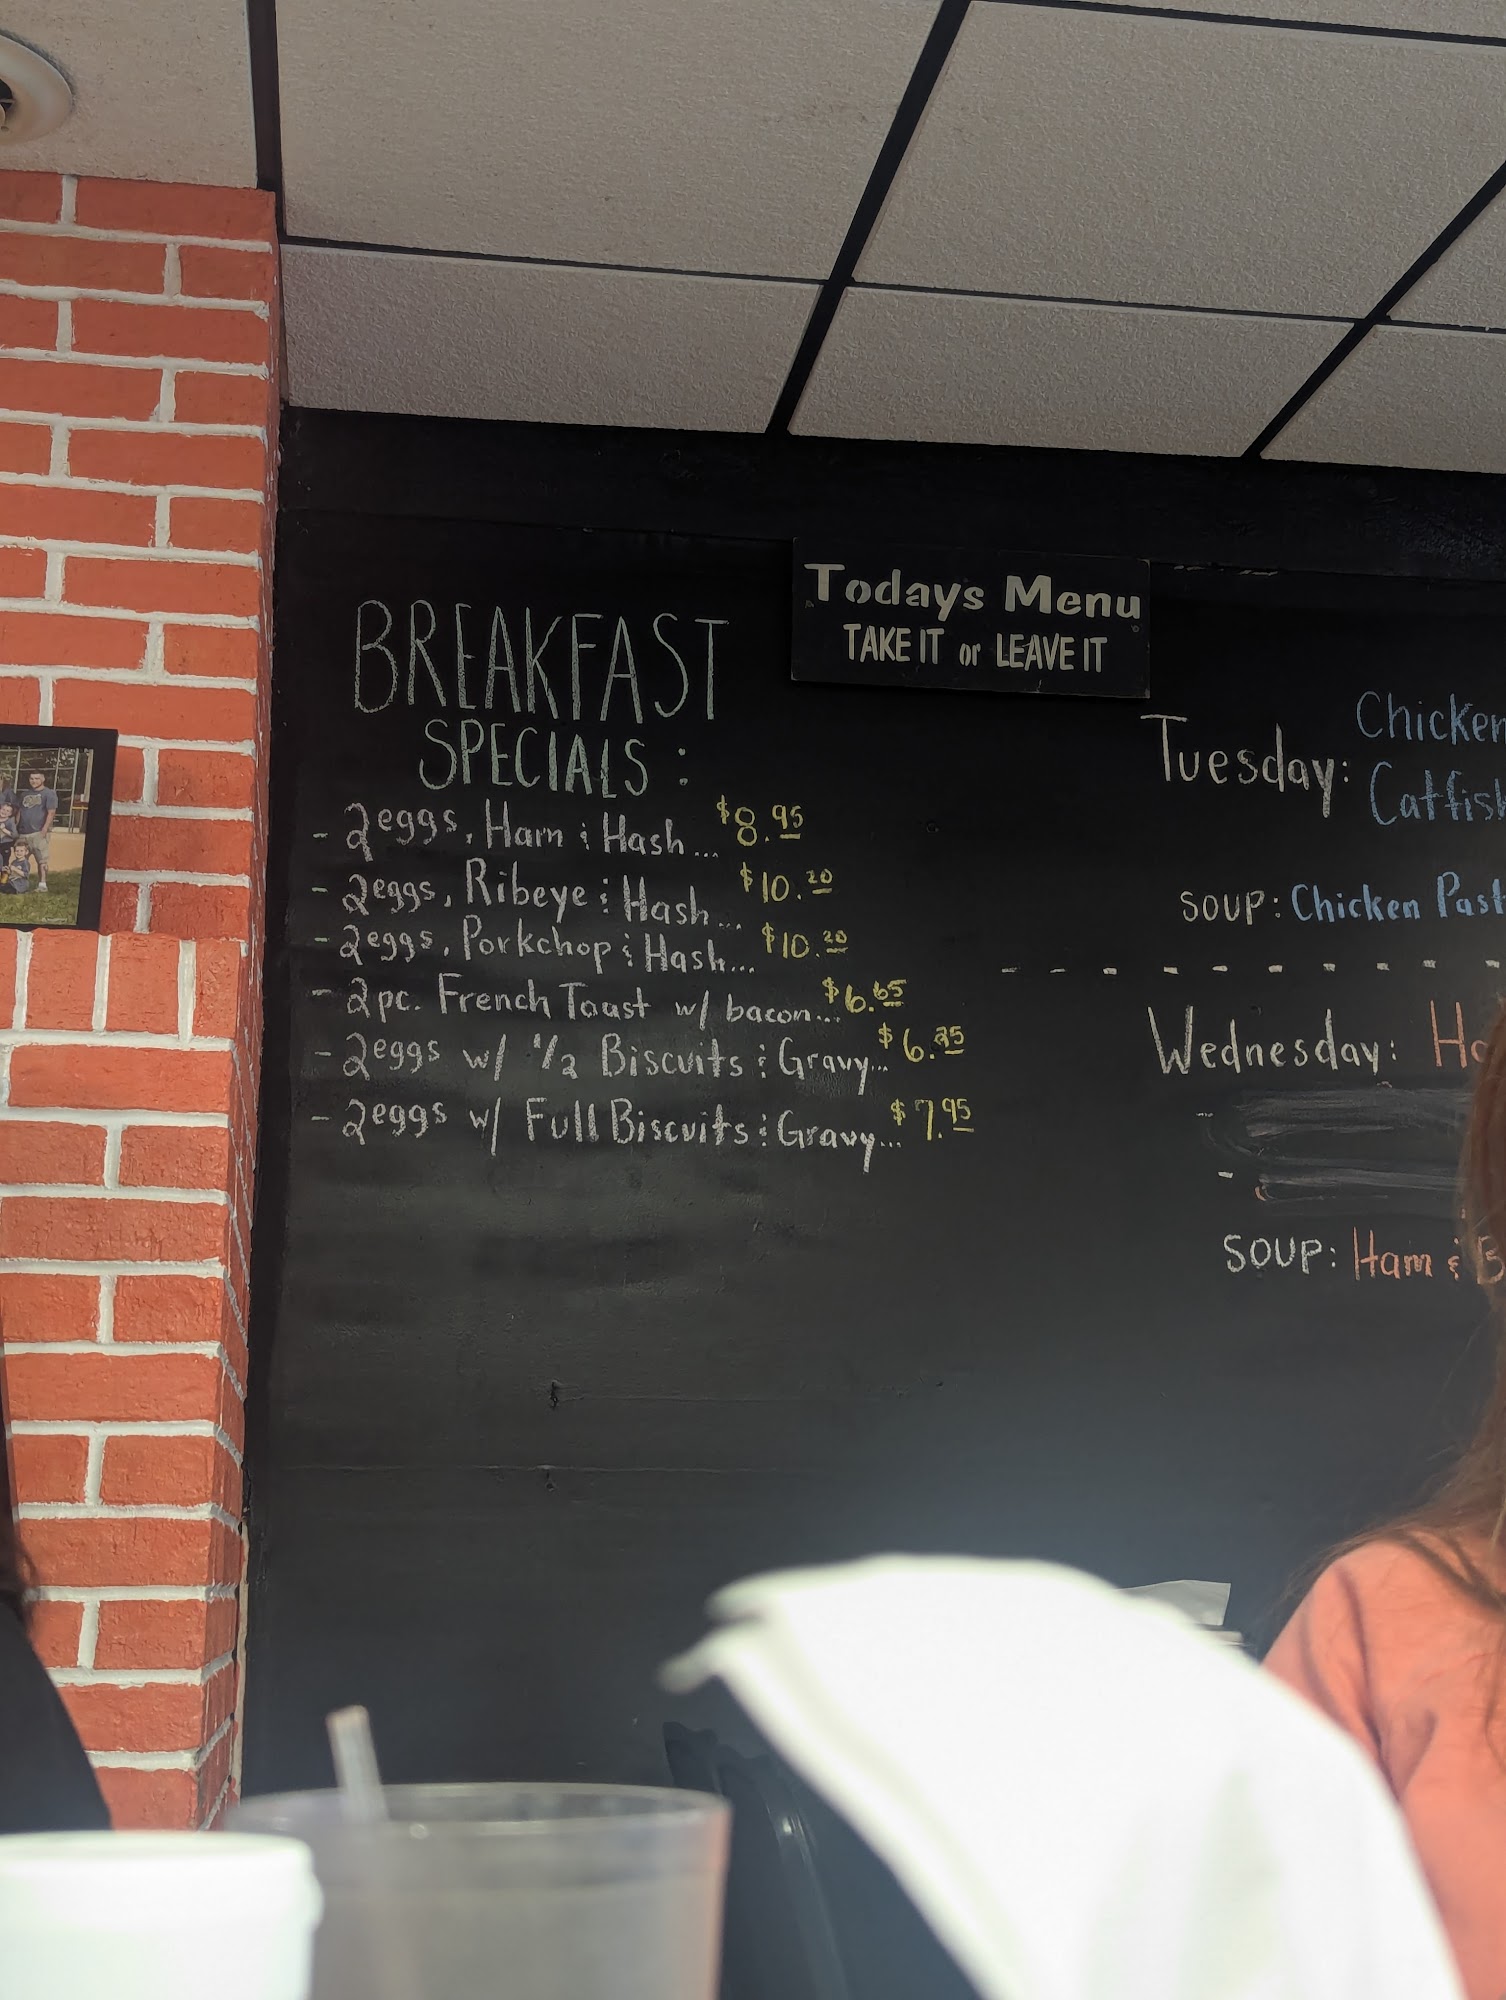 Todays Menu
TAKE IT or LEAVE IT
BREAKFAST
SPECIALS:
- 2eggs, Ham & Hash... $8.95
- 2eggs, Ribeye & Hash... $10.20
- 2eggs, Porkchop & Hash... $10.20
- 2pc. French Toast w/ bacon... $6.65
- 2eggs w/ 1/2 Biscuits & Gravy... $6.95
- 2eggs w/ Full Biscuits & Gravy... $7.95
Tuesday: Chicken
Catfish
SOUP: Chicken Past
Wednesday: Ha
SOUP: Ham & B